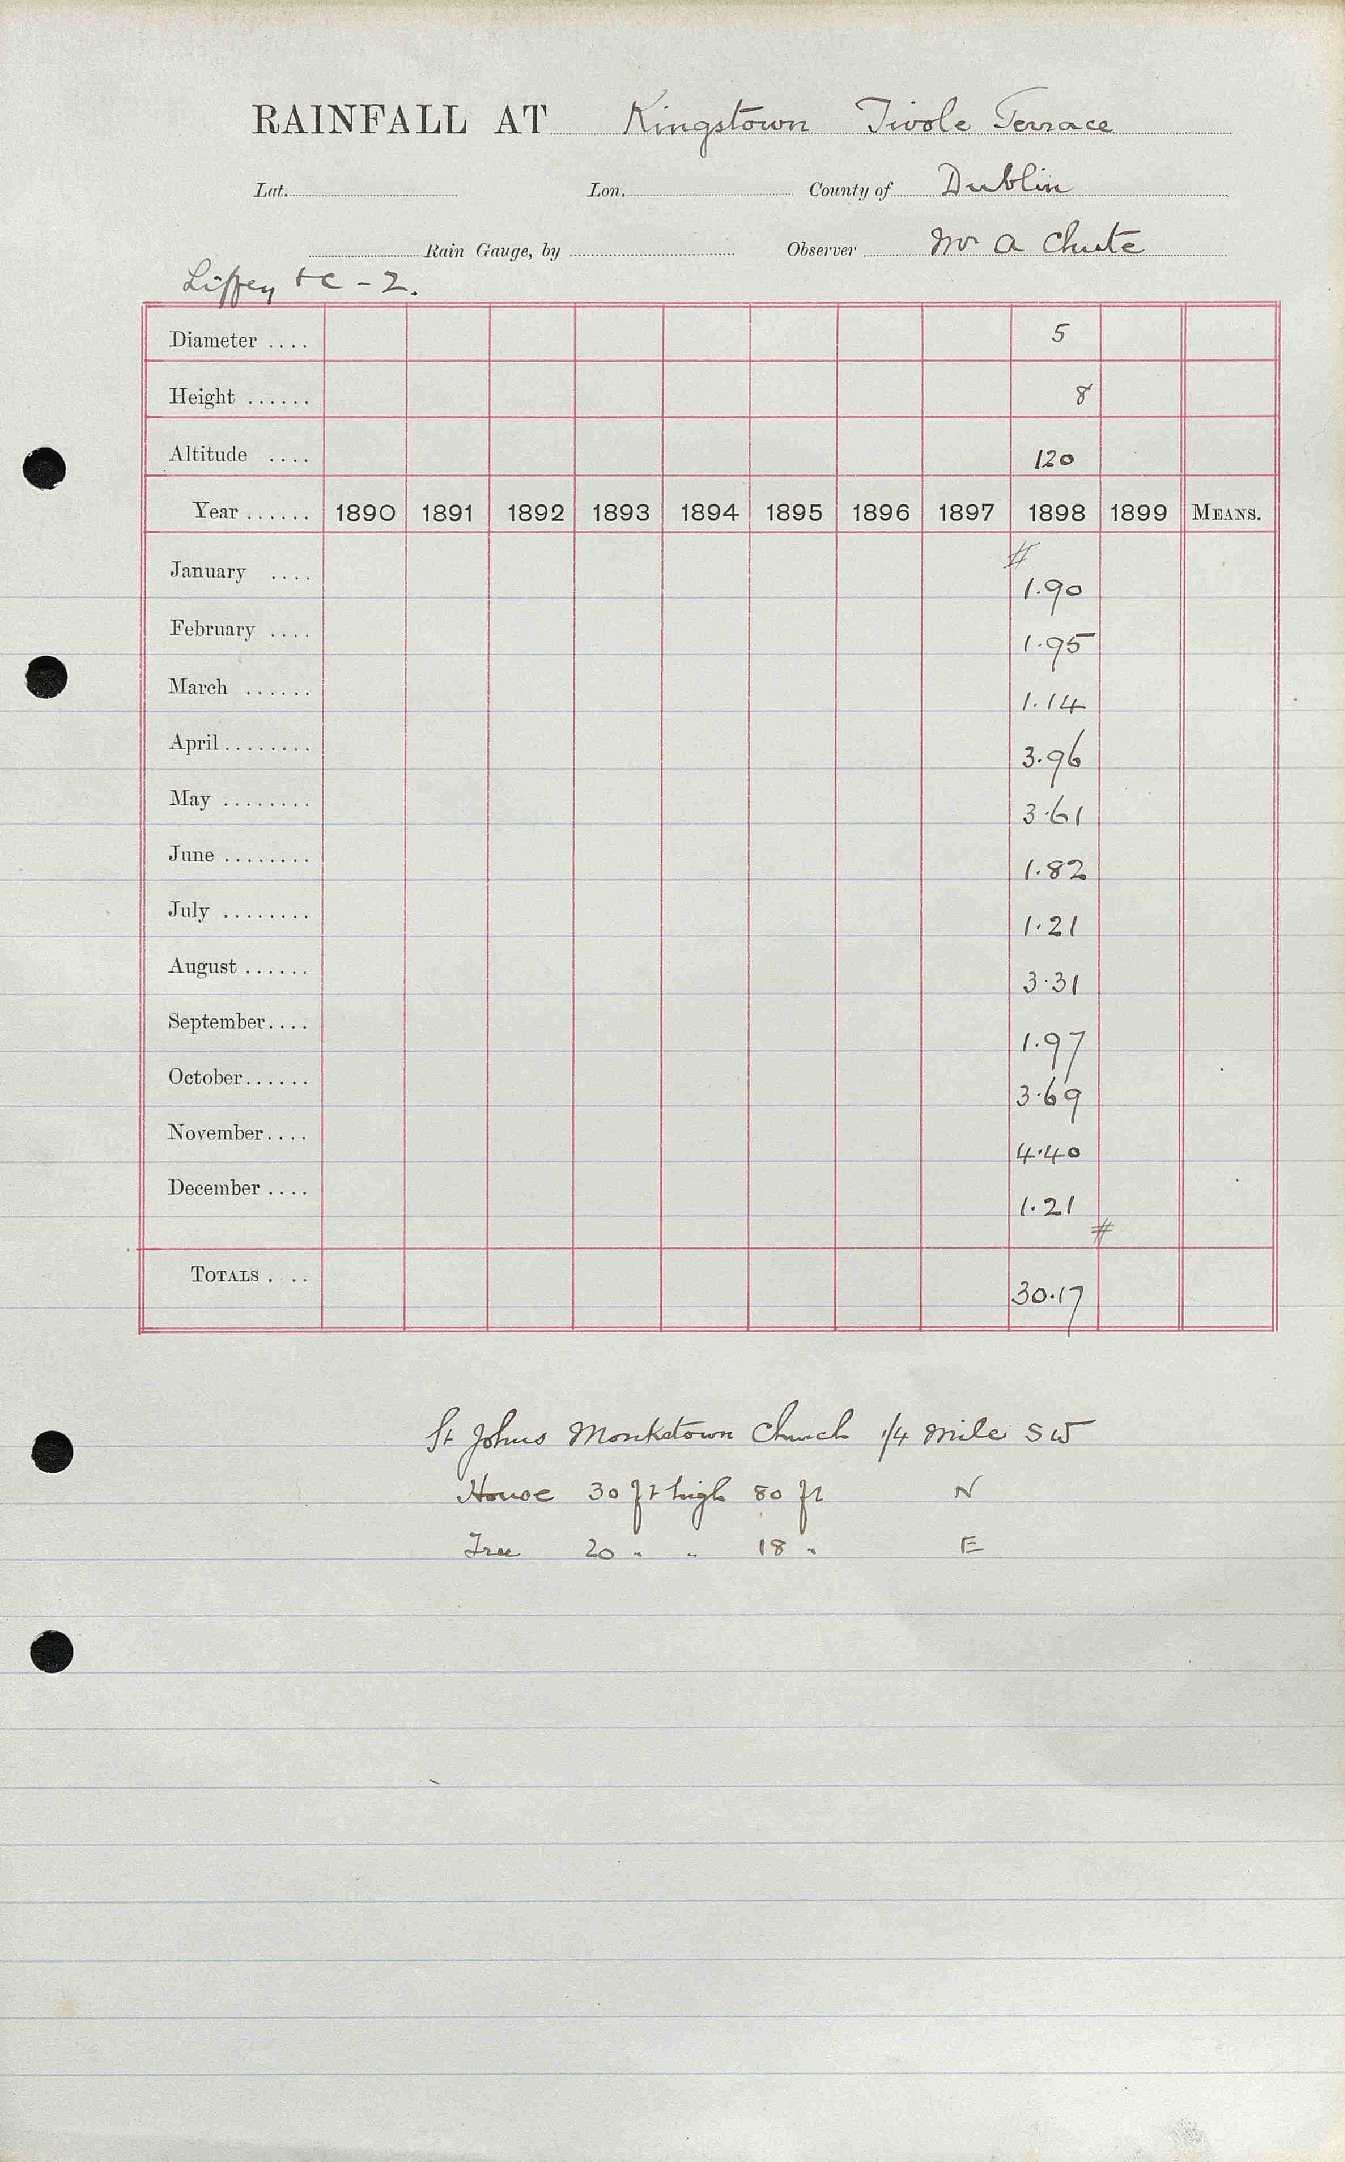 RAINFALL AT Kingstown Tivole Terrace
Lat. Lon. County of Dublin
Rain Gauge, by Observer Mr A Chute
Liffey &c - 2.
Diameter .... 5
Height ...... 8
Altitude .... 120
Year ...... 1890 1891 1892 1893 1894 1895 1896 1897 1898 1899 MEANS.
#
January .... 1.90
February .... 1.95
March ...... 1.14
April ........ 3.96
May ........ 3.61
June ........ 1.82
July ........ 1.21
August ...... 3.31
September.... 1.97
October...... 3.69
November.... 4.40
December .... 1.21
#
TOTALS . .. 30.17
St Johns Monkstown Church 1/4 mile SW
House 30 ft high 80 ft N
Tree 20 " " 18 " E